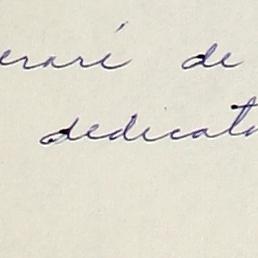 eraré de
dedicato